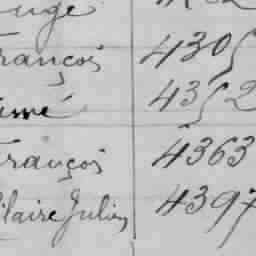 François 4305
Aimé 4352
François 4363
Hilaire Julien 4397